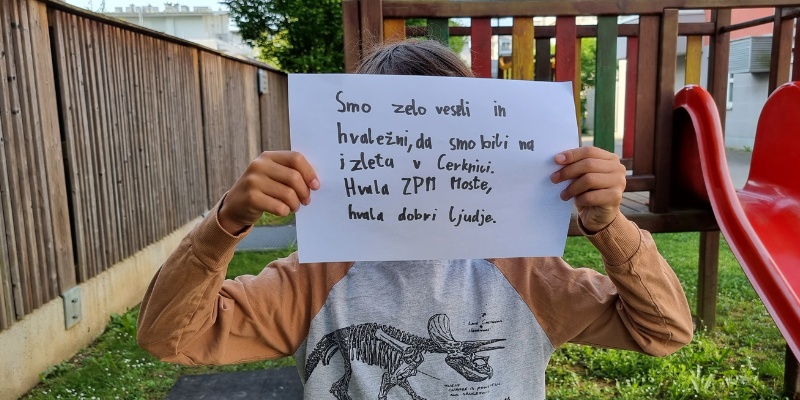 Smo zelo veseli in
hvaležni, da smo bili na
izleta v Cerknici.
Hvala ZPM Moste,
hvala dobri ljudje.